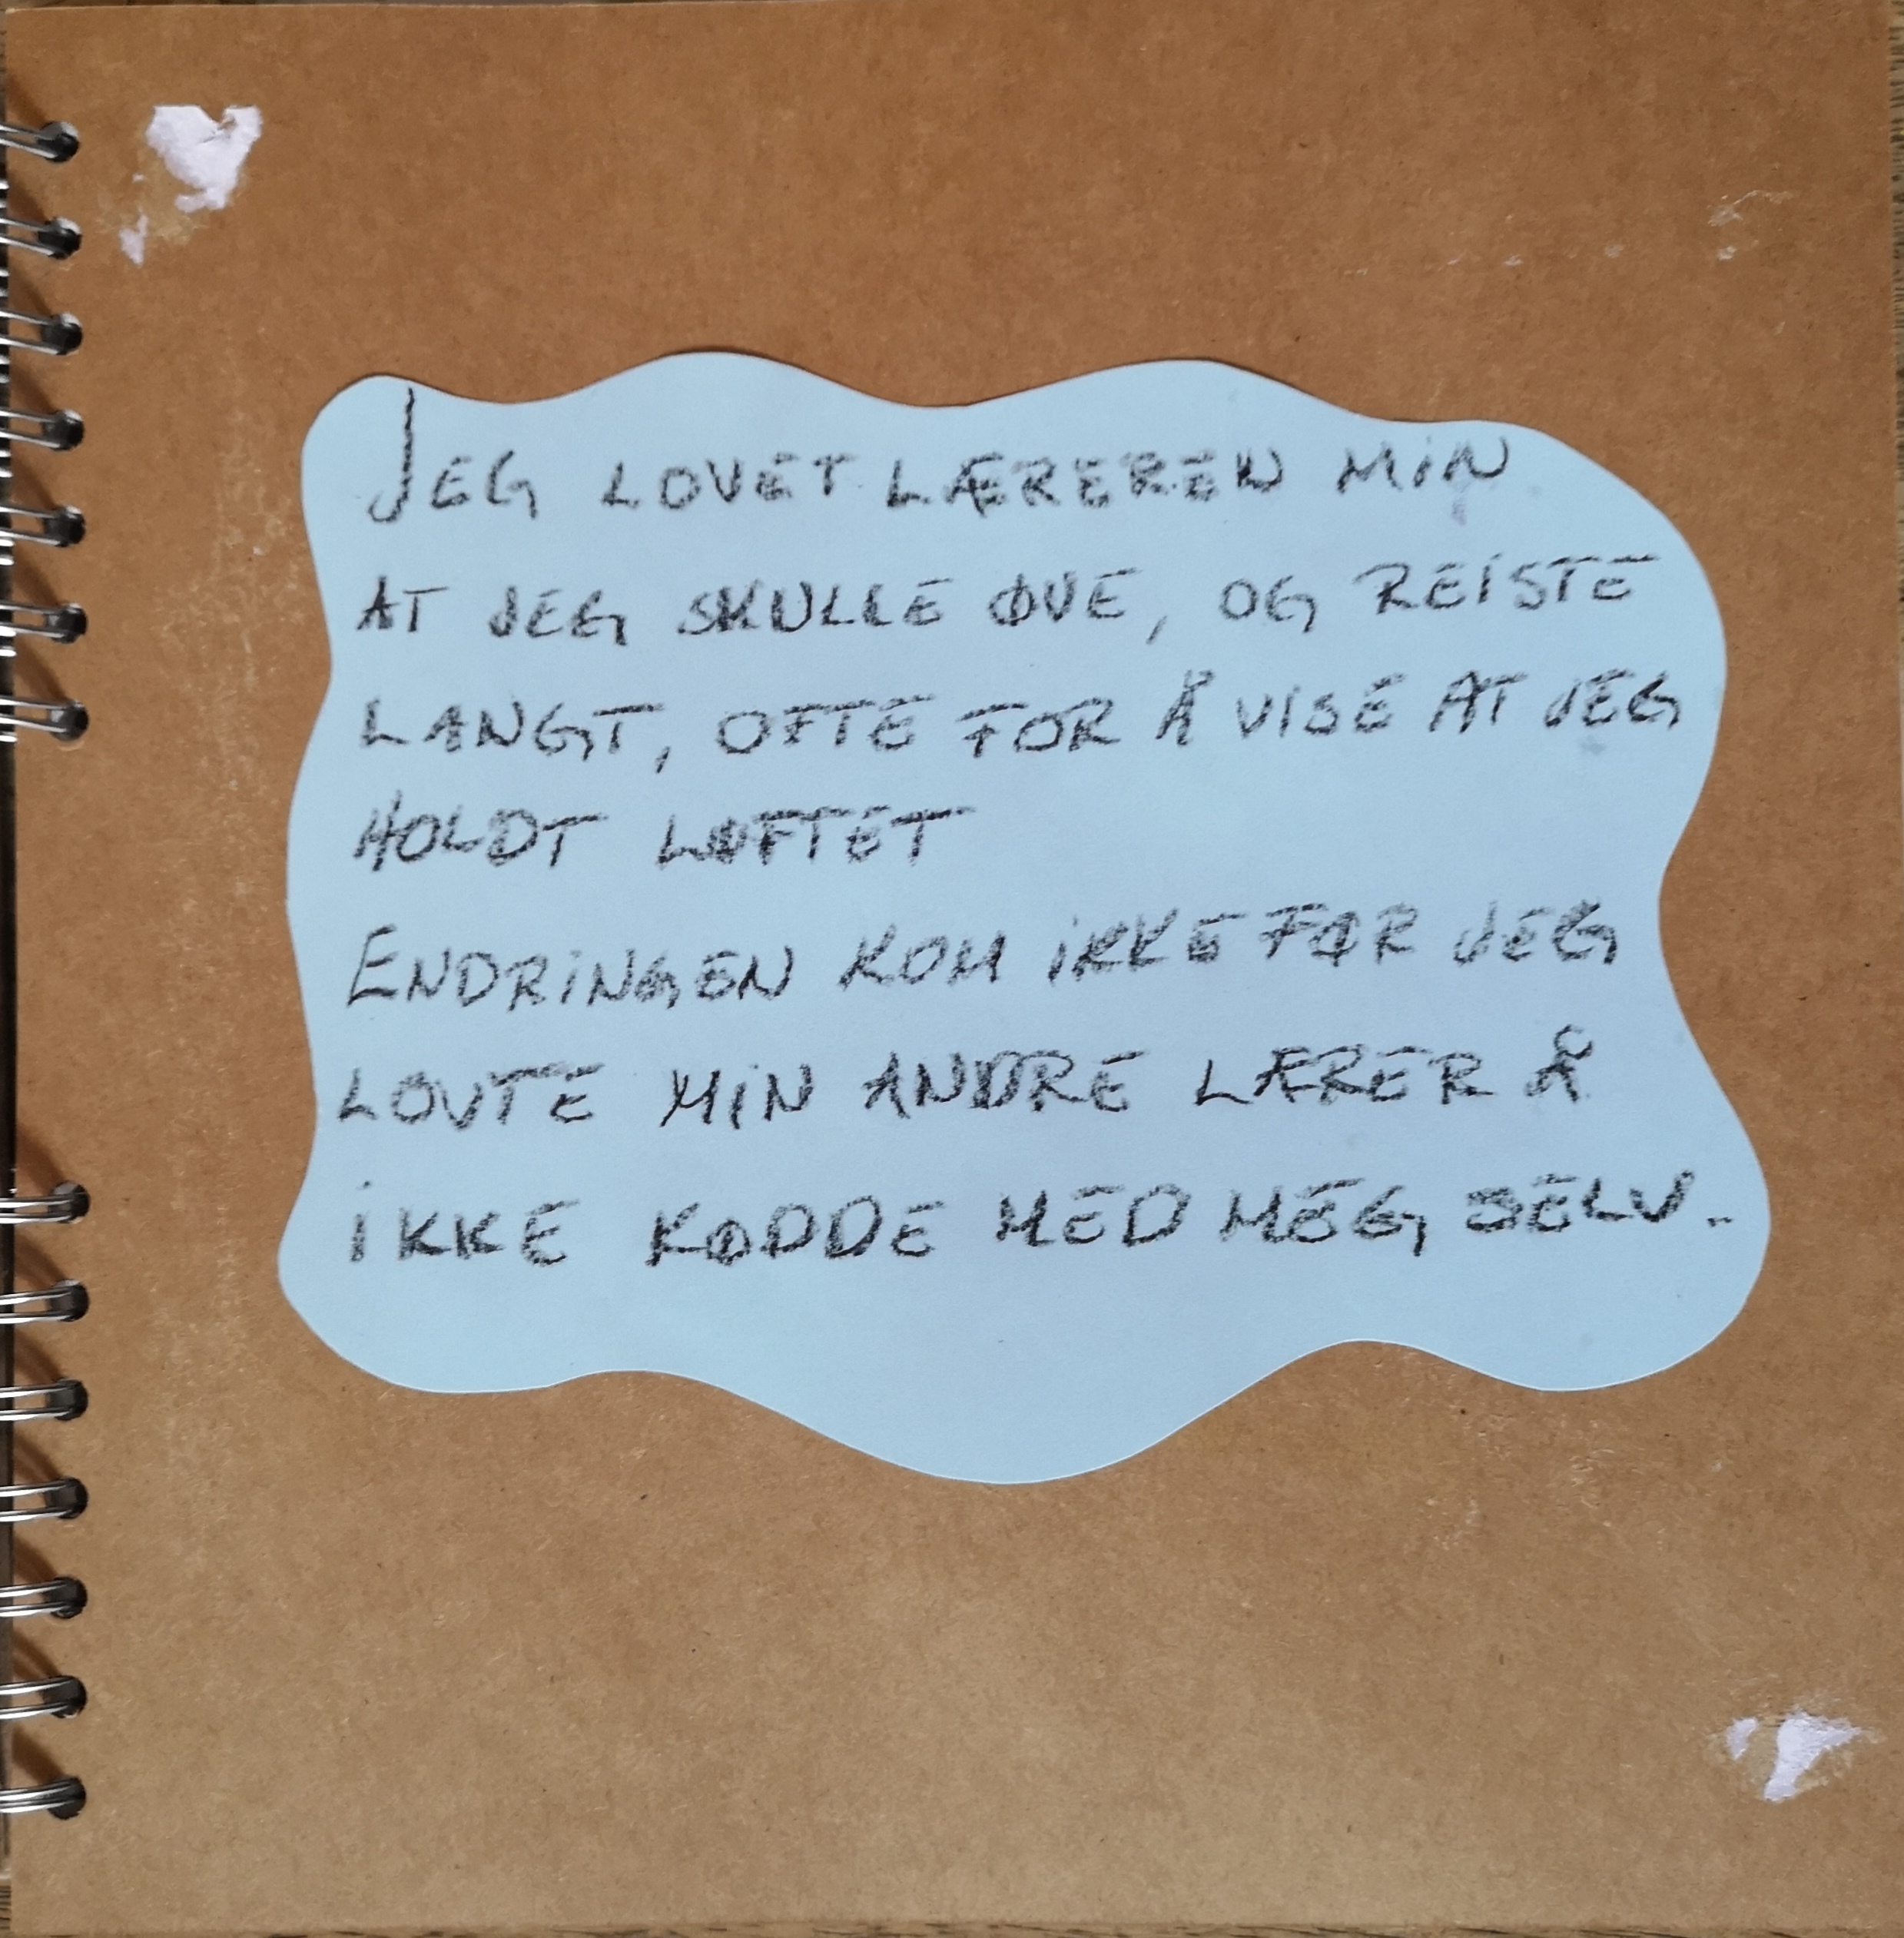 JEG LOVET LÆREREN MIN
AT JEG SKULLE ØVE, OG REISTE
LANGT, OFTE FOR Å VISE AT JEG
HOLDT LØFTET
ENDRINGEN KOM IKKE FØR JEG
LOVTE MIN ANDRE LÆRER Å
IKKE KØDDE MED MEG SELV..